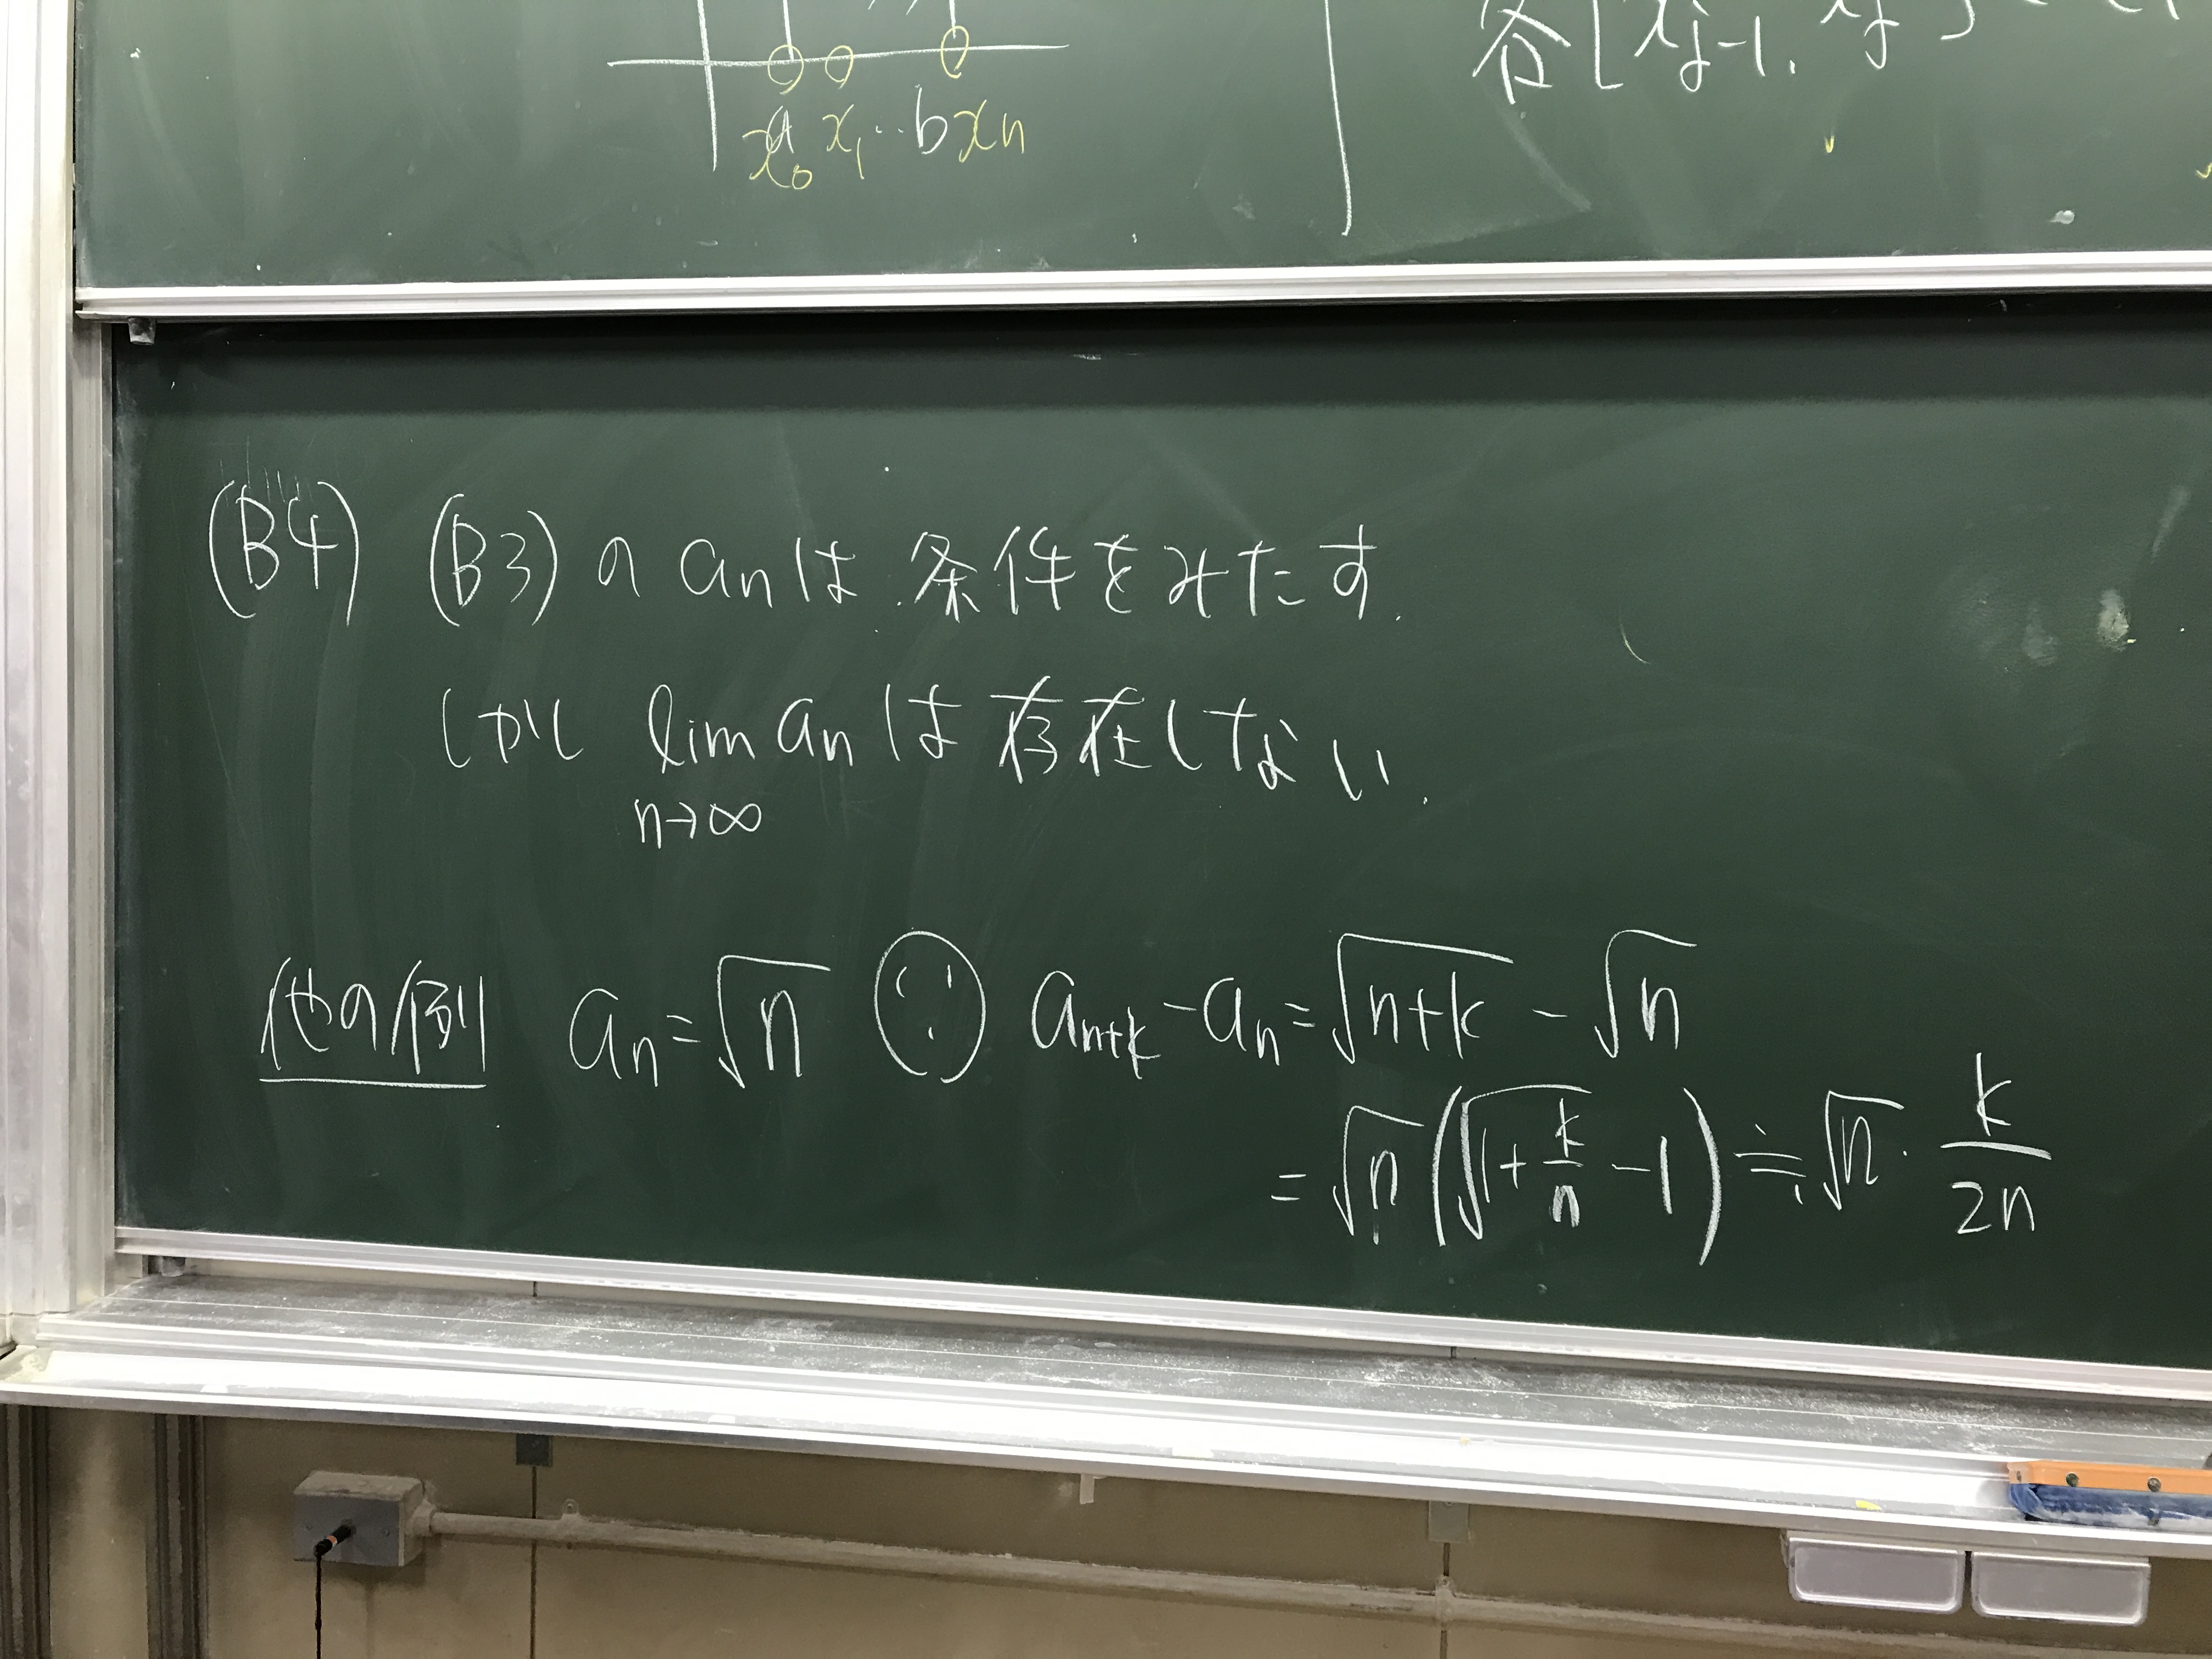 x₀ a x₁ ‥ b xn
各[xj-1, xj]
(B4) (B3)の an は 条件をみたす.
しかし lim an は存在しない.
n→∞
他の例 an = √n ∵ an+k - an = √(n+k) - √n
= √n (√(1+k/n) - 1) ≒ √n・k/2n